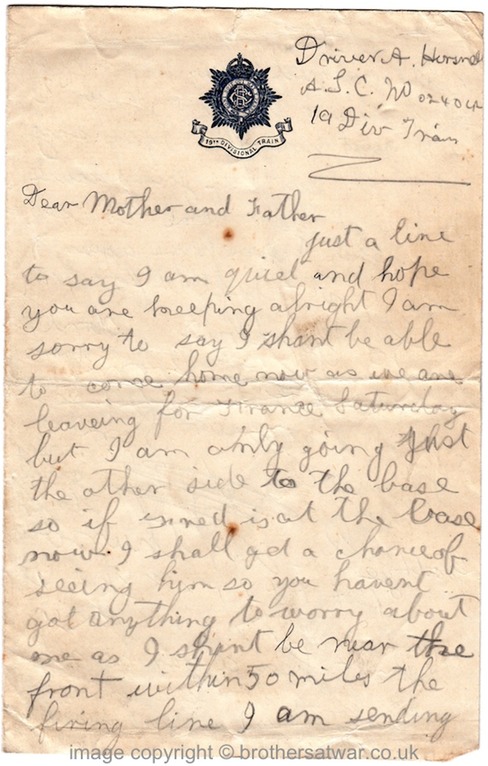 Driver A. Horsnell
A.S.C. No
19 Div Train
19TH DIVISIONAL TRAIN
Dear Mother and Father
just a line
to say I am quiet and hope
you are keeping alright I am
sorry to say I shant be able
to come home now as we are
leaveing for France Saturday
but I am only going just
the other side to the base
so if is at the base
now I shall get a chance of
seeing him so you havent
got anything to worry about
me as I shant be near the
front within 50 miles the
fireing line I am sending
image copyright © brothersatwar.co.uk